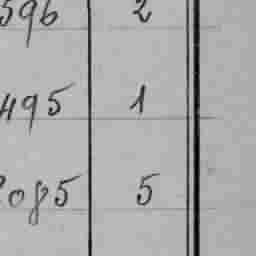 596 2
495 1
085 5